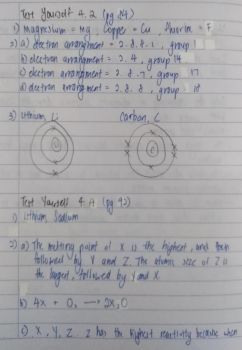 Test Yourself 4.2 (pg 84)
1) Magnesium = Mg, Copper = Cu, fluorine = F
2) a) electron arrangement = 2.8.8.1, group 1
b) electron arrangement = 2.4, group 14
c) electron arrangement = 2.8.7, group 17
d) electron arrangement = 2.8.8, group 18
3) Lithium, Li Carbon, C
Test Yourself 4.4 (pg 92)
1) Lithium, Sodium
2) a) The melting point of X is the highest, and then
followed by Y and Z. The atomic size of Z is
the largest, followed by Y and X.
b) 4X + O₂ → 2X₂O
c) X, Y, Z. Z has the highest reactivity because when